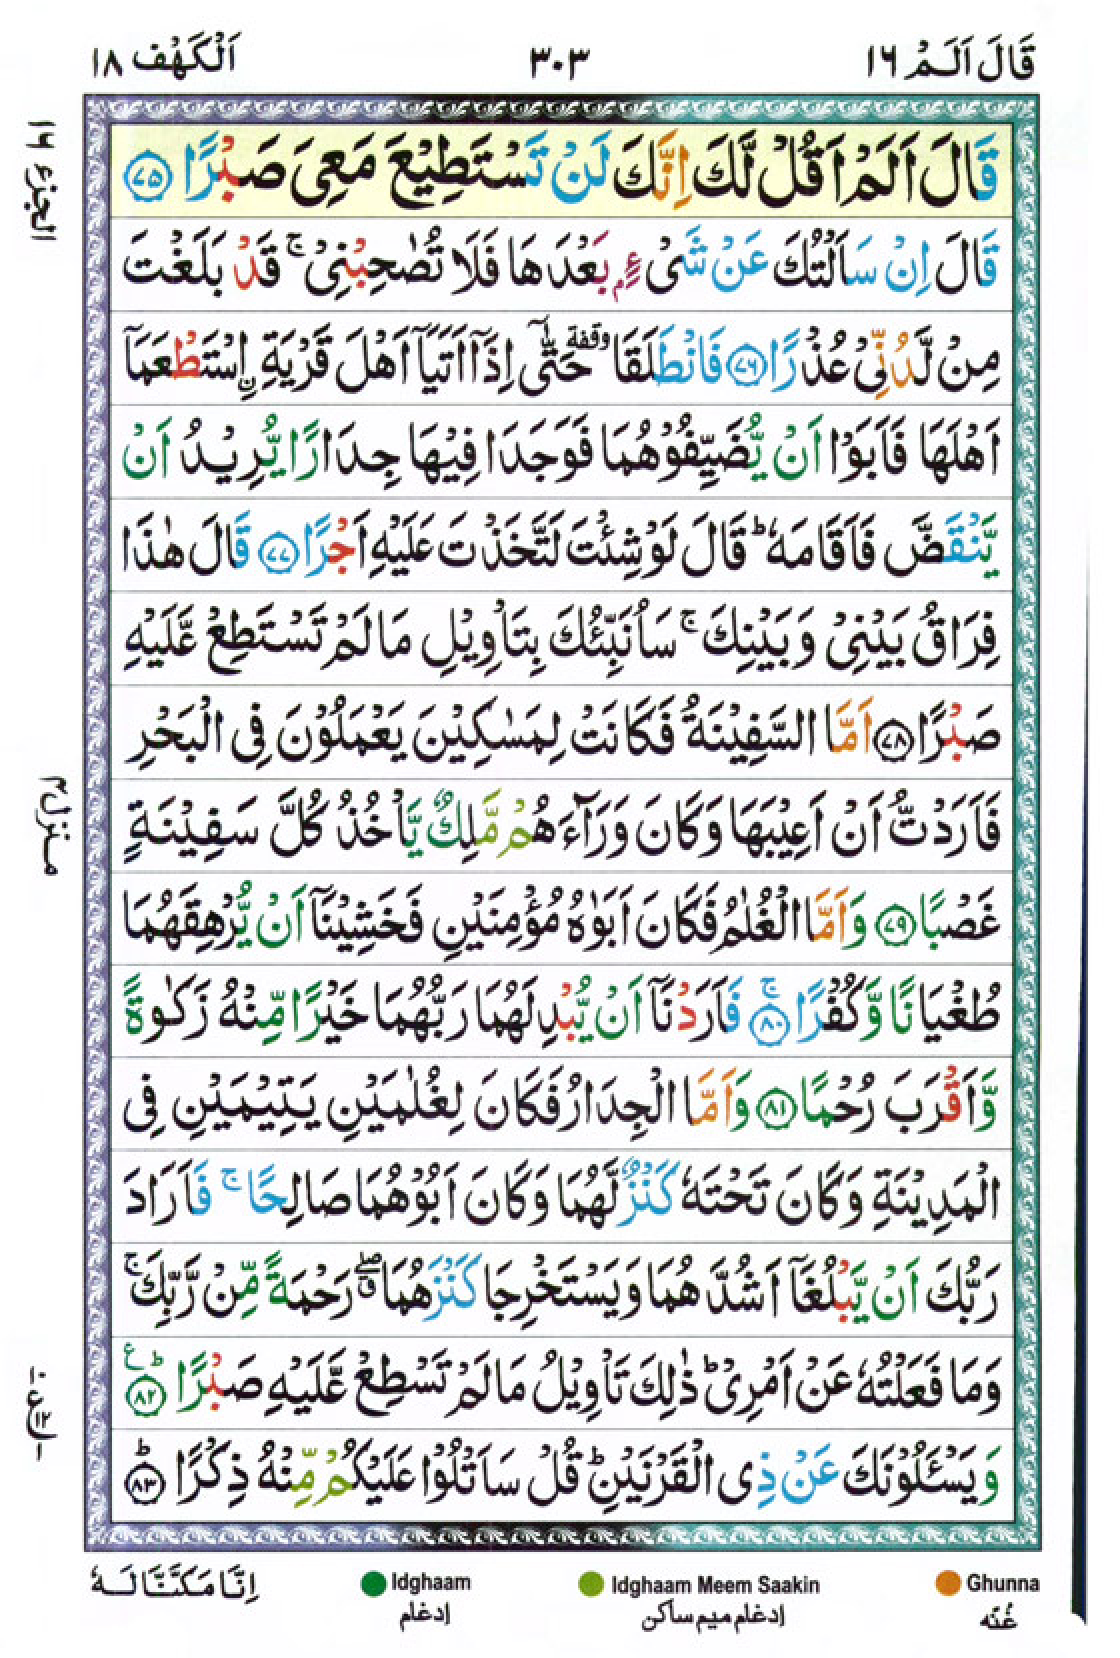 قَالَ اَلَمْ ١٦
٣٠٣
اَلْكَهْف ١٨
الجزء ١٦
قَالَ اَلَمْ اَقُلْ لَّكَ اِنَّكَ لَنْ تَسْتَطِيْعَ مَعِىَ صَبْرًا ﴿٧٥﴾
قَالَ اِنْ سَاَلْتُكَ عَنْ شَىْءٍۭ بَعْدَهَا فَلَا تُصٰحِبْنِىْ ۚ قَدْ بَلَغْتَ
مِنْ لَّدُنِّىْ عُذْرًا ﴿٧٦﴾ فَانْطَلَقَا وقفة حَتّٰٓى اِذَآ اَتَيَآ اَهْلَ قَرْيَةِ ِۨاسْتَطْعَمَآ
اَهْلَهَا فَاَبَوْا اَنْ يُّضَيِّفُوْهُمَا فَوَجَدَا فِيْهَا جِدَارًا يُّرِيْدُ اَنْ
يَّنْقَضَّ فَاَقَامَهٗ ؕ قَالَ لَوْ شِئْتَ لَتَّخَذْتَ عَلَيْهِ اَجْرًا ﴿٧٧﴾ قَالَ هٰذَا
فِرَاقُ بَيْنِىْ وَبَيْنِكَ ۚ سَاُنَبِّئُكَ بِتَاْوِيْلِ مَا لَمْ تَسْتَطِعْ عَّلَيْهِ
صَبْرًا ﴿٧٨﴾ اَمَّا السَّفِيْنَةُ فَكَانَتْ لِمَسٰكِيْنَ يَعْمَلُوْنَ فِى الْبَحْرِ
فَاَرَدْتُّ اَنْ اَعِيْبَهَا وَكَانَ وَرَآءَهُمْ مَّلِكٌ يَّاْخُذُ كُلَّ سَفِيْنَةٍ
غَصْبًا ﴿٧٩﴾ وَاَمَّا الْغُلٰمُ فَكَانَ اَبَوٰهُ مُؤْمِنَيْنِ فَخَشِيْنَآ اَنْ يُّرْهِقَهُمَا
طُغْيَانًا وَّكُفْرًا ۚ ﴿٨٠﴾ فَاَرَدْنَآ اَنْ يُّبْدِلَهُمَا رَبُّهُمَا خَيْرًا مِّنْهُ زَكٰوةً
وَّاَقْرَبَ رُحْمًا ﴿٨١﴾ وَاَمَّا الْجِدَارُ فَكَانَ لِغُلٰمَيْنِ يَتِيْمَيْنِ فِى
الْمَدِيْنَةِ وَكَانَ تَحْتَهٗ كَنْزٌ لَّهُمَا وَكَانَ اَبُوْهُمَا صَالِحًا ۚ فَاَرَادَ
رَبُّكَ اَنْ يَّبْلُغَآ اَشُدَّهُمَا وَيَسْتَخْرِجَا كَنْزَهُمَا ۖ ق رَحْمَةً مِّنْ رَّبِّكَ ۚ
وَمَا فَعَلْتُهٗ عَنْ اَمْرِىْ ؕ ذٰلِكَ تَاْوِيْلُ مَا لَمْ تَسْطِعْ عَّلَيْهِ صَبْرًا ؕ ع ﴿٨٢﴾
وَيَسْـَٔلُوْنَكَ عَنْ ذِى الْقَرْنَيْنِ ؕ قُلْ سَاَتْلُوْا عَلَيْكُمْ مِّنْهُ ذِكْرًا ؕ ﴿٨٣﴾
منزل ٤
اِنَّا مَكَّنَّا لَهٗ
Idghaam
ادغام
Idghaam Meem Saakin
ادغام میم ساکن
Ghunna
غُنّه